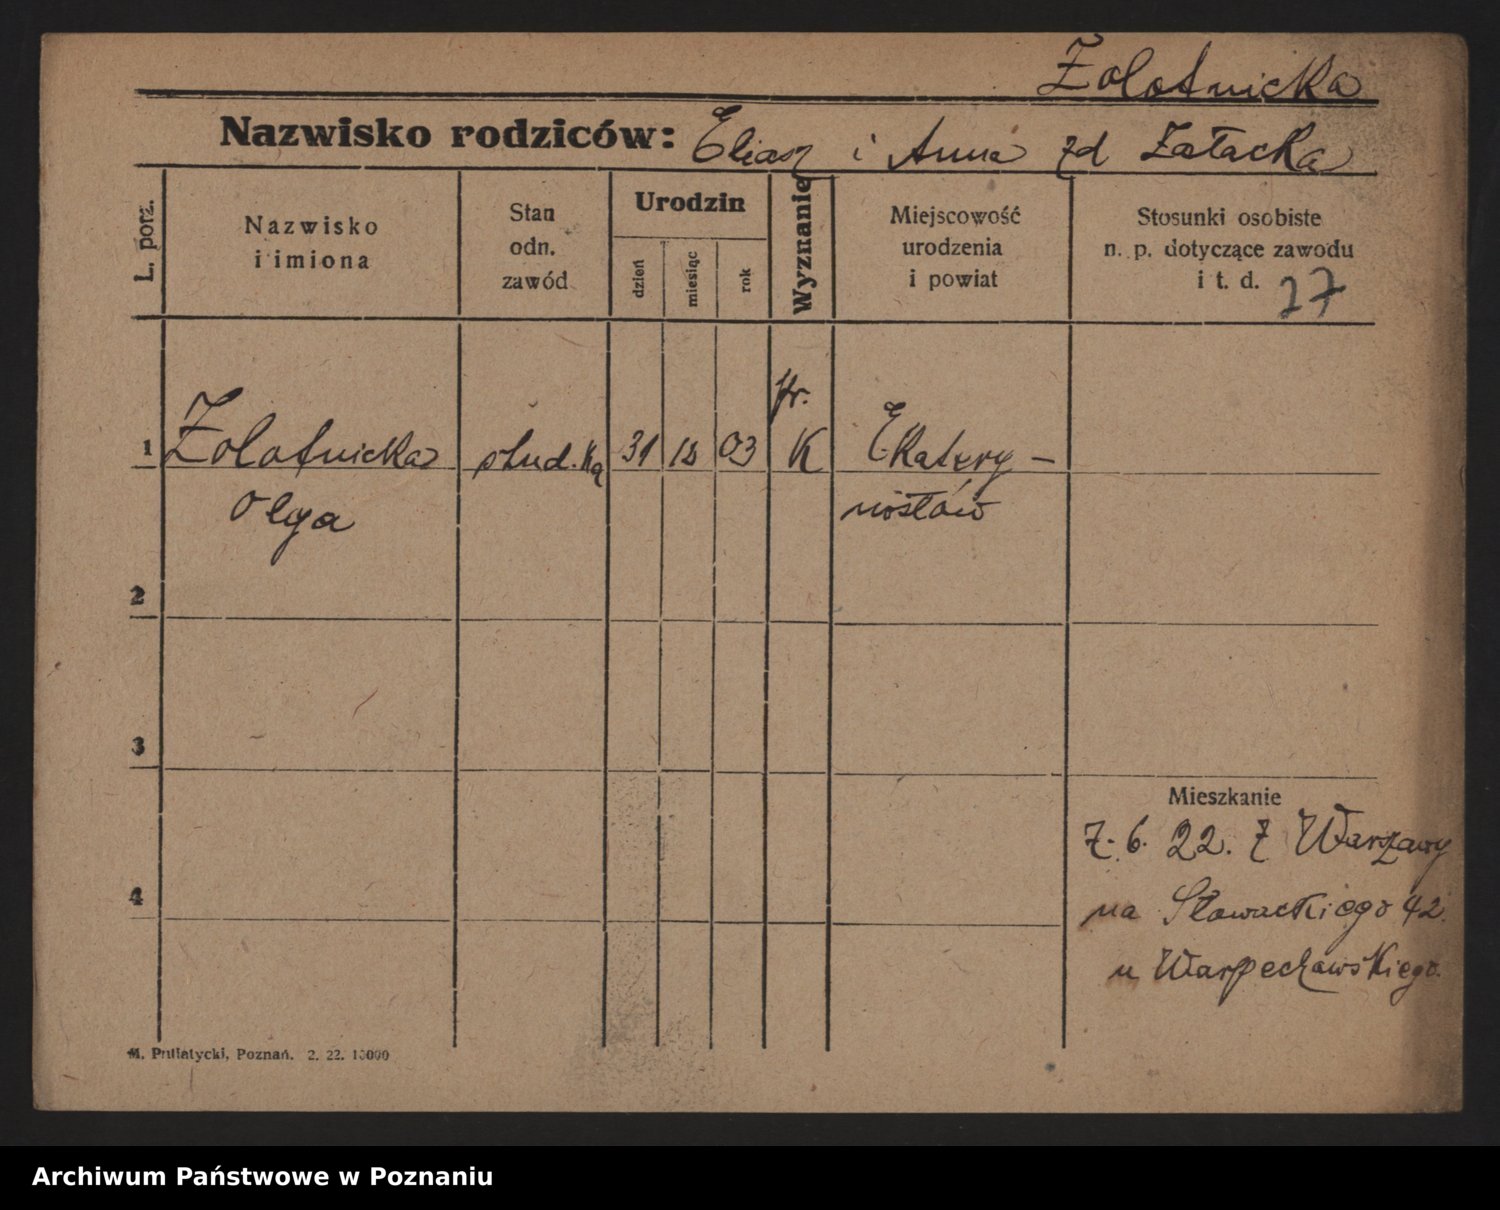 Zolotnicka
Nazwisko rodziców: Eliasz i Anna zd Załacka
L. porz.
Nazwisko
i imiona
Stan
odn.
zawód
Urodzin
dzień
miesiąc
rok
Wyznanie
Miejscowość
urodzenia
i powiat
Stosunki osobiste
n. p. dotyczące zawodu
i t. d.
27
pr.
1 Zolotnicka stud.ka 31 12 03 K Ekatery-
Olga nosław
2
3
Mieszkanie
7. 6. 22. z Warszawy
4
na Słowackiego 42.
u Warpechowskiego.
M. Putiatycki, Poznań. 2. 22. 10000
Archiwum Państwowe w Poznaniu